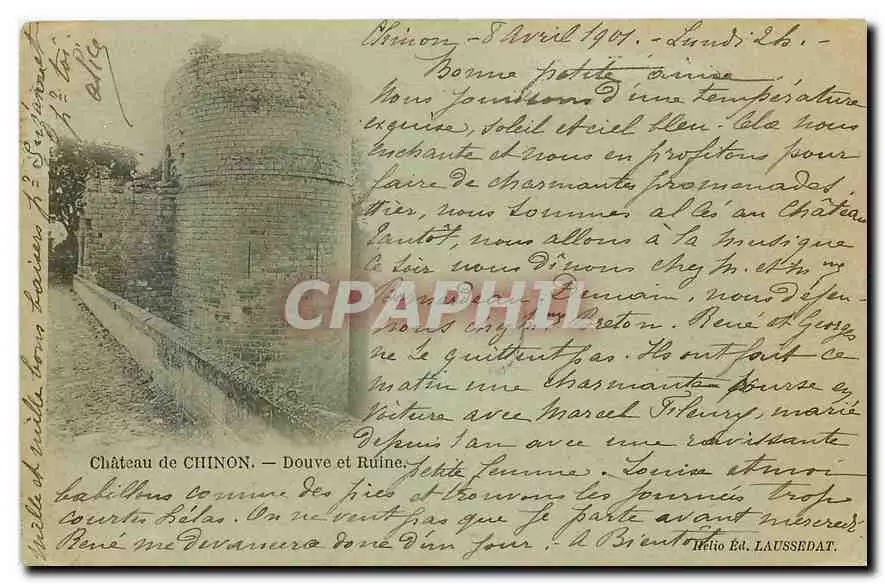 Chinon - 8 Avril 1901. - Lundi 2h. -
Bonne petite amie
Nous jouissons d'une température
exquise, soleil et ciel bleu - Cela nous
enchante et nous en profitons pour
faire de charmantes promenades
Hier, nous sommes allés au Château
Tantôt, nous allons à la musique
Ce soir nous dînons chez M. et Mme
Demain, nous déjeu-
nons chez Mme Breton. René et Georges
ne se quittent pas. Ils ont fait ce
matin une charmante course en
voiture avec Marcel Fleury, marié
depuis 1 an avec une ravissante
petite femme. Louise et moi
babillons comme des pies et trouvons les journées trop
courtes hélas. On ne veut pas que je parte avant mercredi
René me devancera donc d'un jour. - A Bientôt
mille et mille bons baisers pr Suzanne
pr toi
Alice
CPAPHIL
Château de CHINON. - Douve et Ruine.
Hélio Ed. LAUSSEDAT.